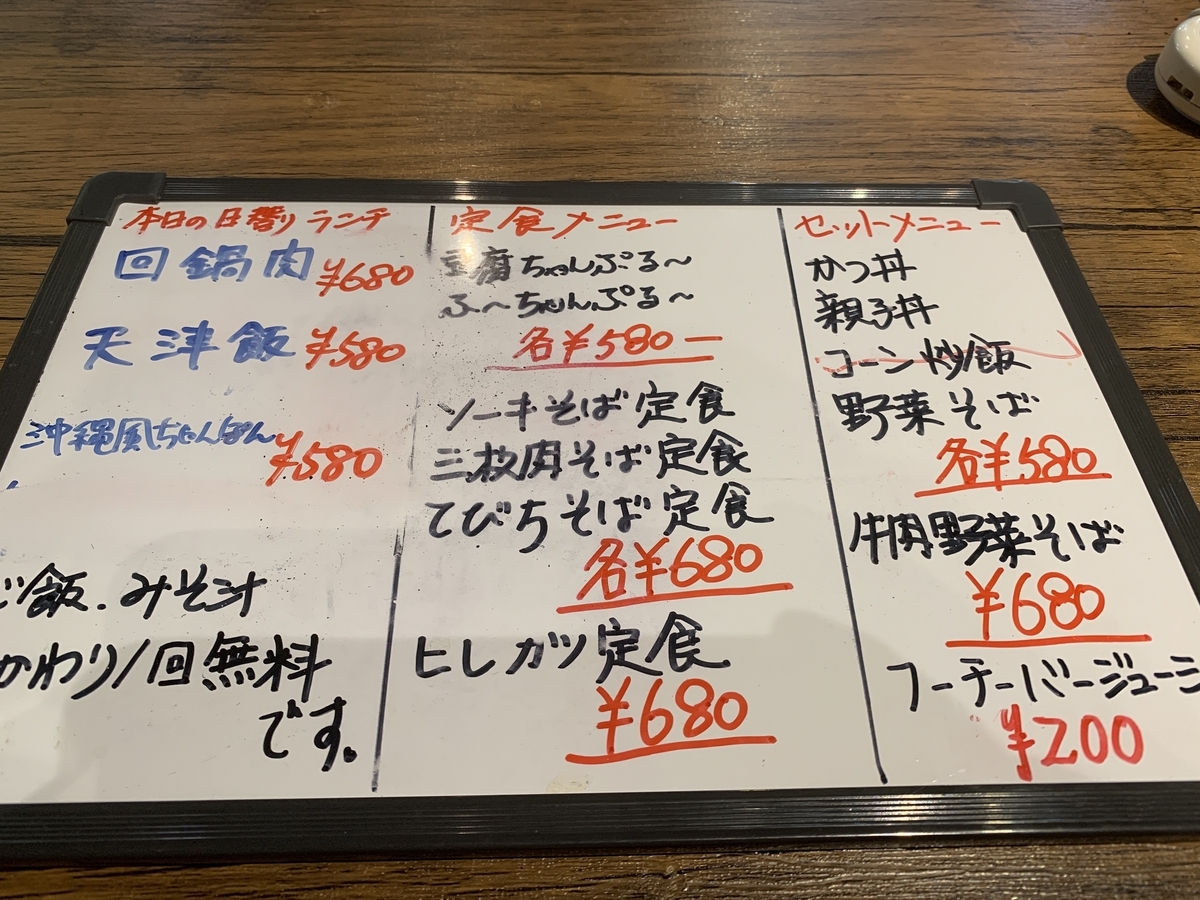 本日の日替りランチ
回鍋肉 ¥680
天津飯 ¥580
沖縄風ちゃんぽん ¥580
ご飯.みそ汁
かわり1回無料
です。
定食メニュー
豆腐ちゃんぷる〜
ふ〜ちゃんぷる〜
各¥580ー
ソーキそば定食
三枚肉そば定食
てびちそば定食
各¥680
ヒレカツ定食
¥680
セットメニュー
かつ丼
親子丼
コーン炒飯
野菜そば
各¥580
牛肉野菜そば
¥680
フーチーバージューシ
¥200